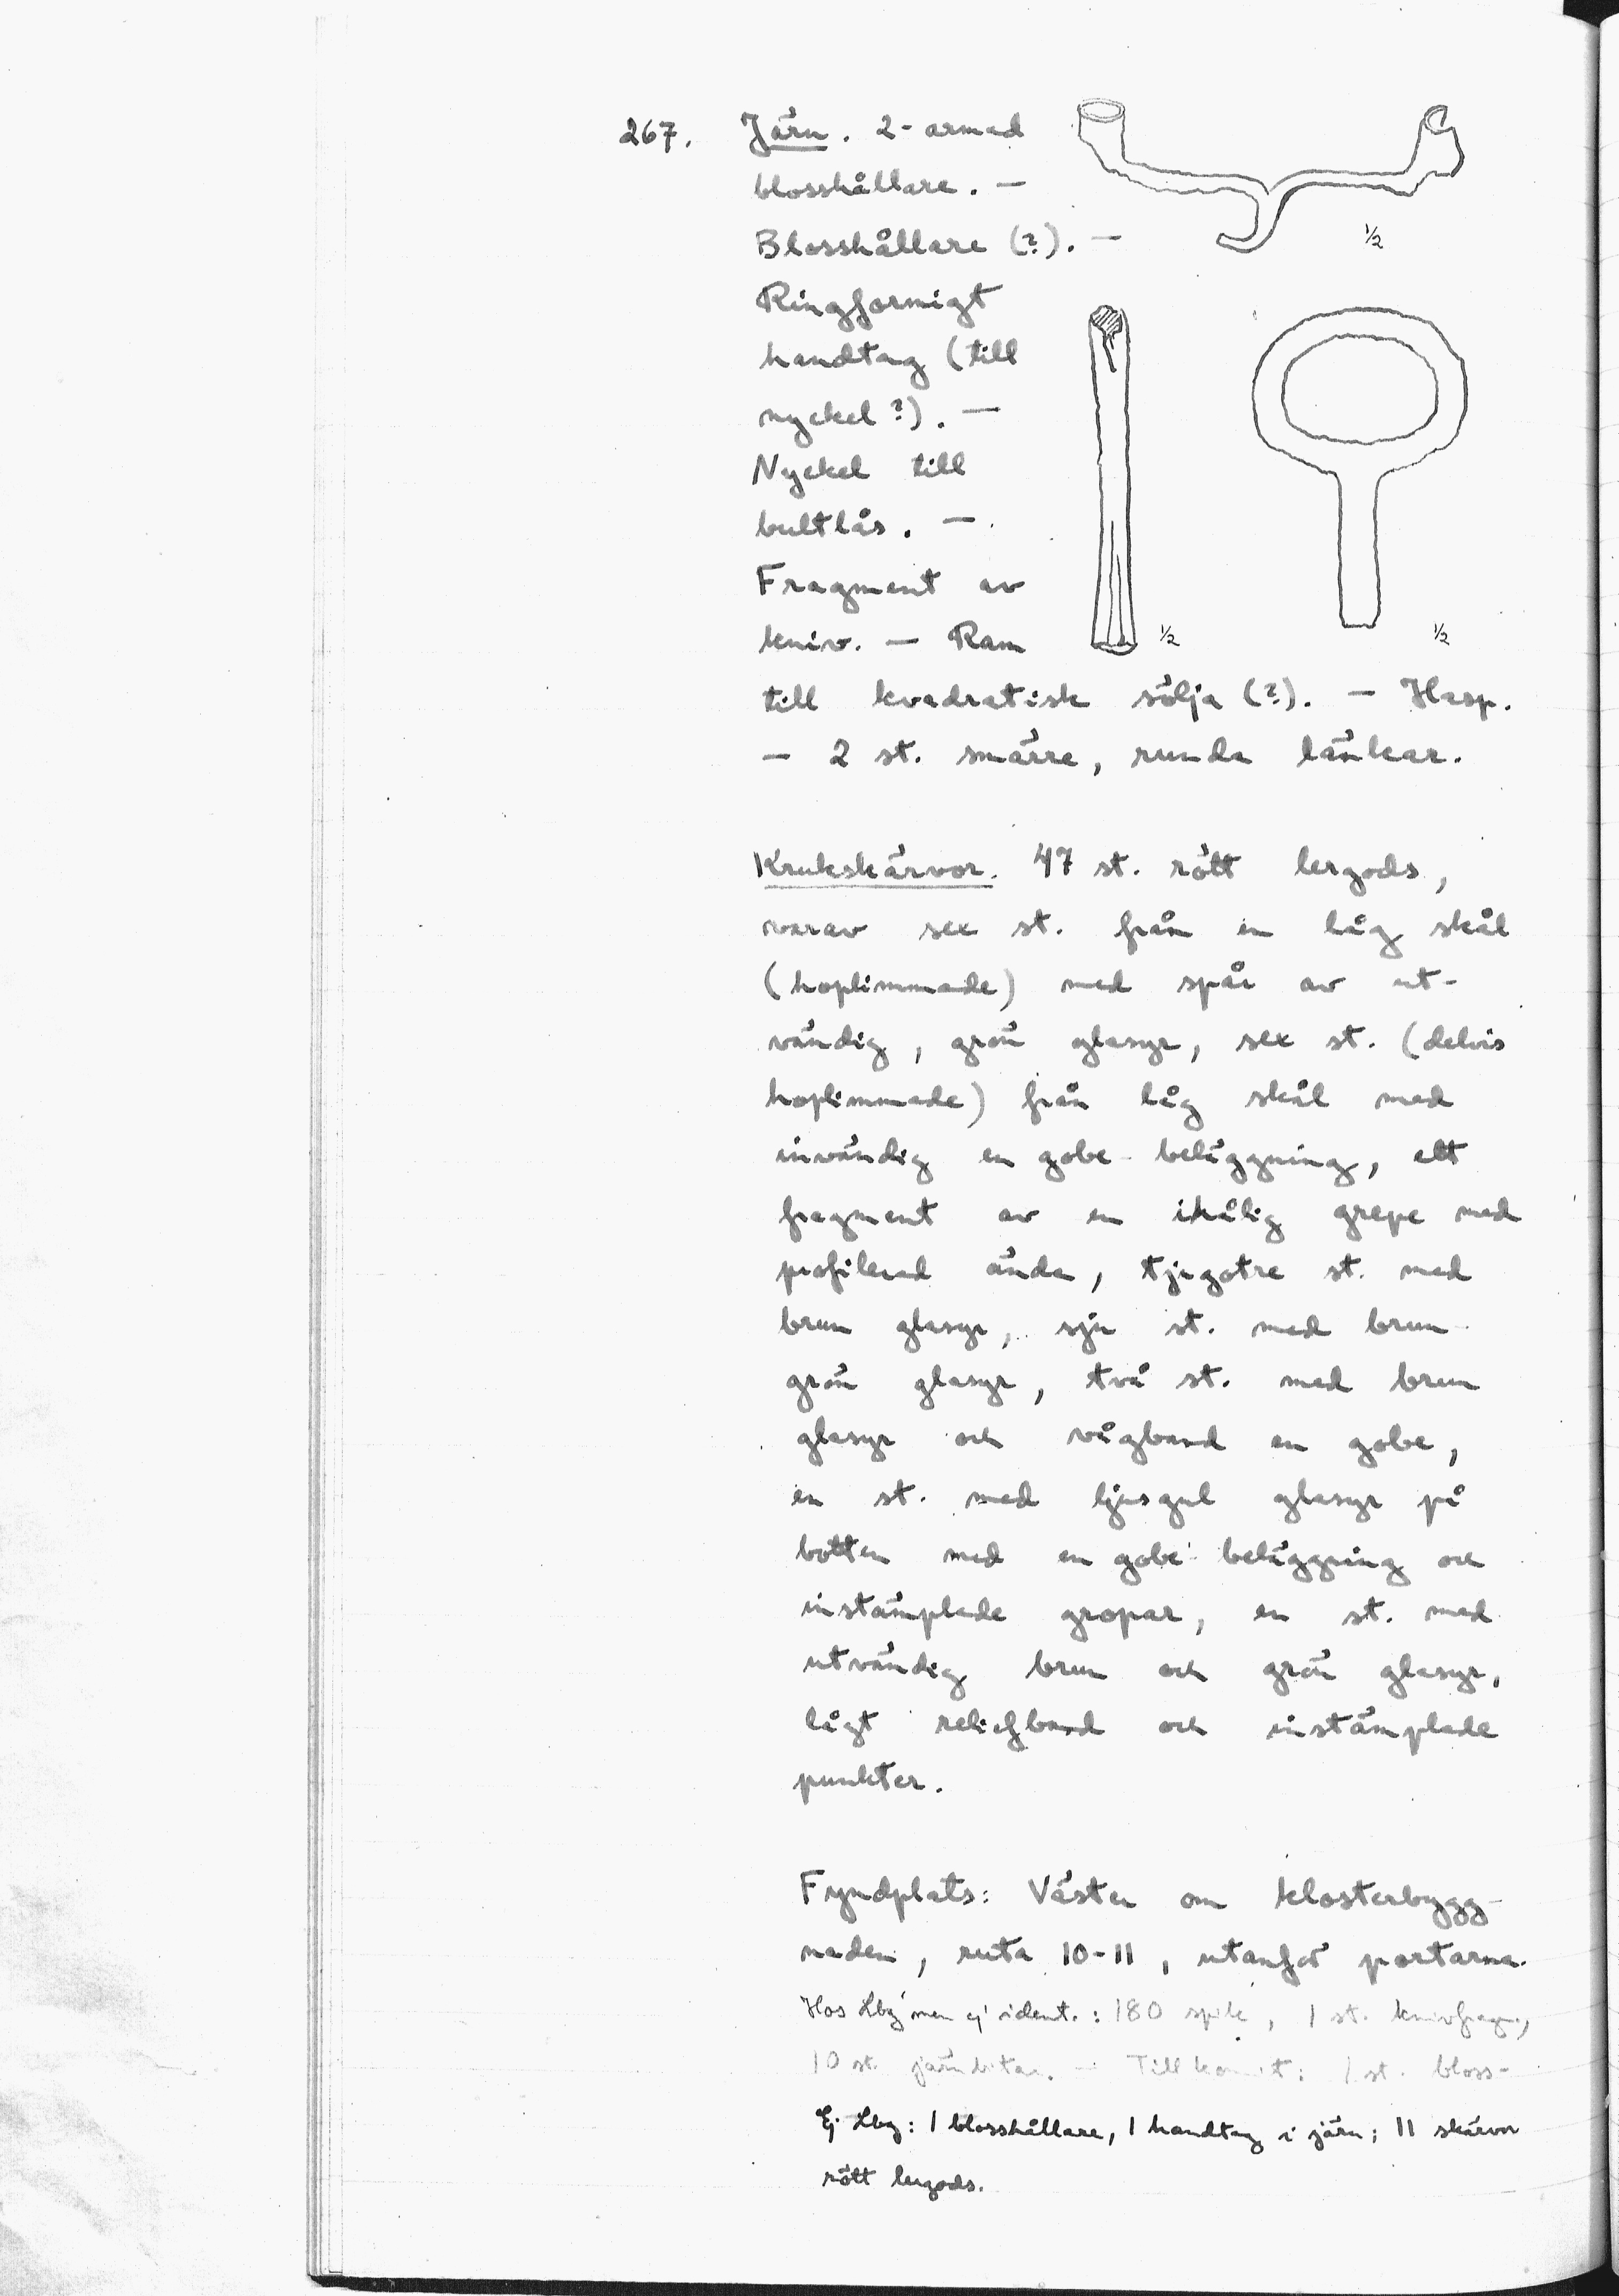 267. Järn. 2-armad
blosshållare. —
Blosshållare (?). —
½
Ringformigt
handtag (till
nyckel ?). —
Nyckel till
bultlås. —
Fragment av
kniv. — Ram
½
½
till kvadratisk sölja (?). — Hasp.
— 2 st. smärre, runda länkar.
Krukskärvor. 47 st. rött lergods,
varav sex st. från en låg skål
(hoplimmade) med spår av ut-
vändig, grön glasyr, sex st. (delvis
hoplimmade) från låg skål med
invändig en gobe-beläggning, ett
fragment av en ihålig grepe med
profilerad ända, tjugotre st. med
brun glasyr, sju st. med brun-
grön glasyr, två st. med brun
glasyr och vågband en gobe,
en st. med ljusgul glasyr på
botten med en gobe-beläggning och
instämplade gropar, en st. med
utvändig brun och grön glasyr,
lågt reliefband och instämplade
punkter.
Fyndplats: Väster om klosterbygg-
naden, ruta 10-11, utanför portarna.
Hos Lbg men ej ident.: 180 spik, 1 st. knivfragm.,
10 st. järnbitar. — Tillkomit: 1 st. bloss-
Ej Lbg: 1 blosshållare, 1 handtag i järn; 11 skärvor
rött lergods.